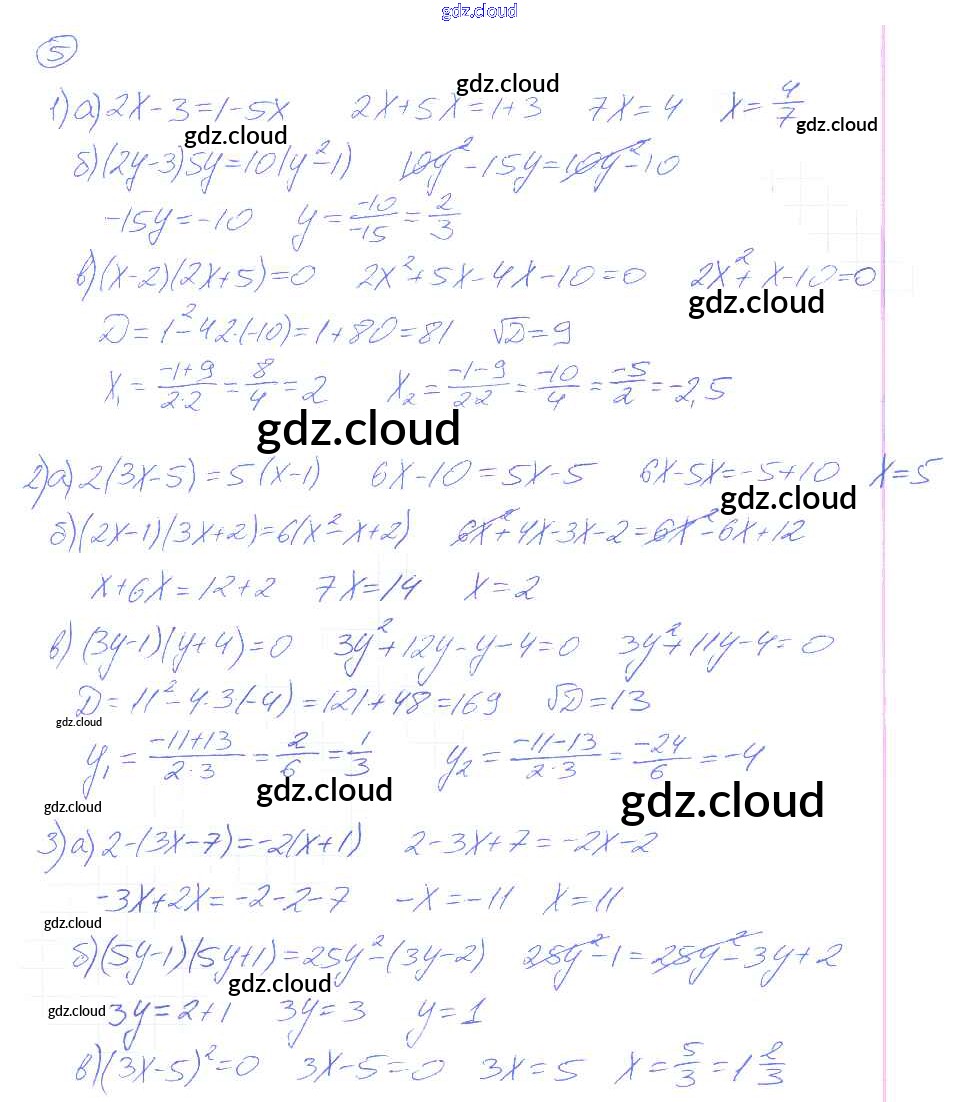 gdz.cloud
5
gdz.cloud
1) а) 2x - 3 = 1 - 5x   2x + 5x = 1 + 3   7x = 4   x = 4/7
gdz.cloud
gdz.cloud
б) (2y - 3)5y = 10(y² - 1)   10y² - 15y = 10y² - 10
-15y = -10   y = -10/-15 = 2/3
в) (x - 2)(2x + 5) = 0   2x² + 5x - 4x - 10 = 0   2x² + x - 10 = 0
gdz.cloud
D = 1² - 42·(-10) = 1 + 80 = 81   √D = 9
x₁ = -1+9/2·2 = 8/4 = 2   x₂ = -1-9/2·2 = -10/4 = -5/2 = -2,5
gdz.cloud
2) а) 2(3x - 5) = 5(x - 1)   6x - 10 = 5x - 5   6x - 5x = -5 + 10   x = 5
gdz.cloud
б) (2x - 1)(3x + 2) = 6(x² - x + 2)   6x² + 4x - 3x - 2 = 6x² - 6x + 12
x + 6x = 12 + 2   7x = 14   x = 2
в) (3y - 1)(y + 4) = 0   3y² + 12y - y - 4 = 0   3y² + 11y - 4 = 0
D = 11² - 4·3(-4) = 121 + 48 = 169   √D = 13
gdz.cloud
y₁ = -11+13/2·3 = 2/6 = 1/3   y₂ = -11-13/2·3 = -24/6 = -4
gdz.cloud
gdz.cloud
gdz.cloud
3) а) 2 - (3x - 7) = -2(x + 1)   2 - 3x + 7 = -2x - 2
-3x + 2x = -2 - 2 - 7   -x = -11   x = 11
gdz.cloud
б) (5y - 1)(5y + 1) = 25y² - (3y - 2)   25y² - 1 = 25y² - 3y + 2
gdz.cloud
gdz.cloud
3y = 2 + 1   3y = 3   y = 1
в) (3x - 5)² = 0   3x - 5 = 0   3x = 5   x = 5/3 = 1 2/3